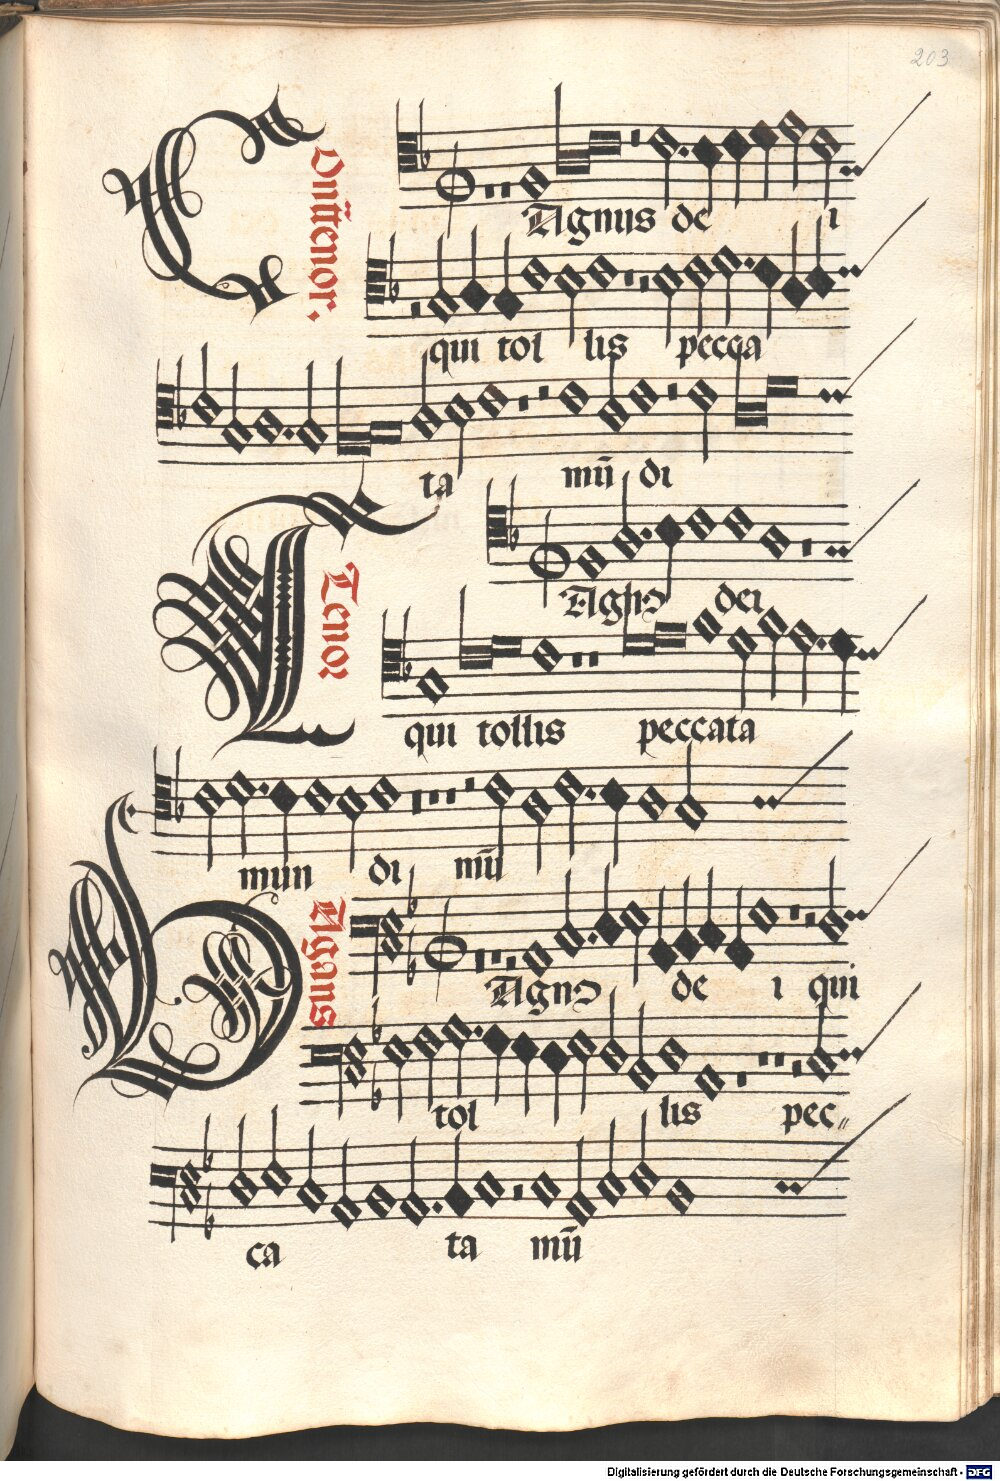 203
Agnus de i
qui tol lis pecca
ta mū di
Tenor
Agnꝰ dei
qui tollis peccata
mun di mū
Vagans
Agnꝰ de i qui
tol lis pec„
ca ta mū
Digitalisierung gefördert durch die Deutsche Forschungsgemeinschaft - DFG